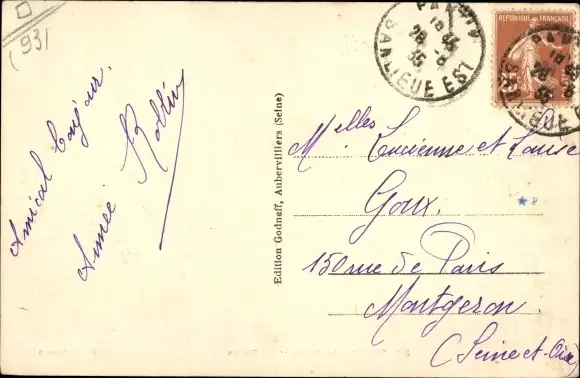 (931
Amical bonjour.
Aimée Rollin
Edition Godneff, Aubervilliers (Seine)
PANTIN
18 35
28 - 6
35
BANLIEUE EST
REPUBLIQUE FRANÇAISE
Melles Lucienne et Louise
Goux.
150 rue de Paris
Montgeron.
(Seine et Oise)